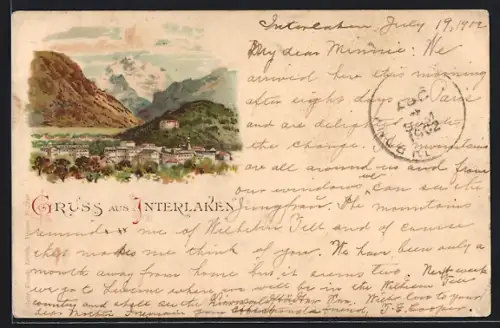 Interlaken, July 19, 1902
My dear Minnie: We
arrived here this morning
after eight days in Paris
and are delighted with
the change. Mountains
are all around us and from
our windows we can see the
Jungfrau. The mountains
remind me of Wilhelm Tell and of course
that makes me think of you. We have been only a
month away from home but it seems two. Next week
we go to Lucerne where we will be in the William Tell
country and shall see the
dear Mother. I remain your affectionate friend, F. E. Cooper.
GRUSS AUS INTERLAKEN